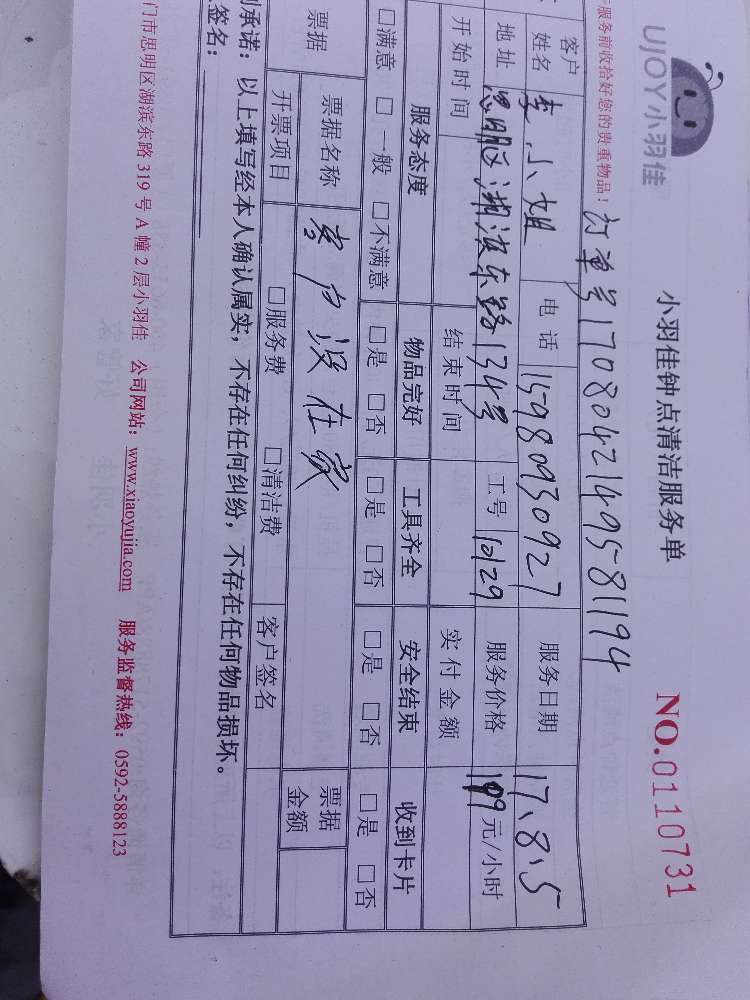 UJOY小羽佳
小羽佳钟点清洁服务单
NO.0110731
服务前收拾好您的贵重物品!
订单号1708042149581194
客户姓名 李小姐 电话 15980930927 服务日期 17.8.5
地址 思明区湖滨东路134号 工号 10129 服务价格 199元/小时
开始时间 结束时间 实付金额
服务态度 物品完好 工具齐全 安全结束 收到卡片
□满意 □一般 □不满意 □是 □否 □是 □否 □是 □否 □是 □否
票据 票据名称 客户没在家 票据金额
开票项目 □服务费 □清洁费 客户签名
承诺:以上填写经本人确认属实,不存在任何纠纷,不存在任何物品损坏。
签名:
门市思明区湖滨东路319号A幢2层小羽佳 公司网站:www.xiaoyujia.com 服务监督热线:0592-5888123